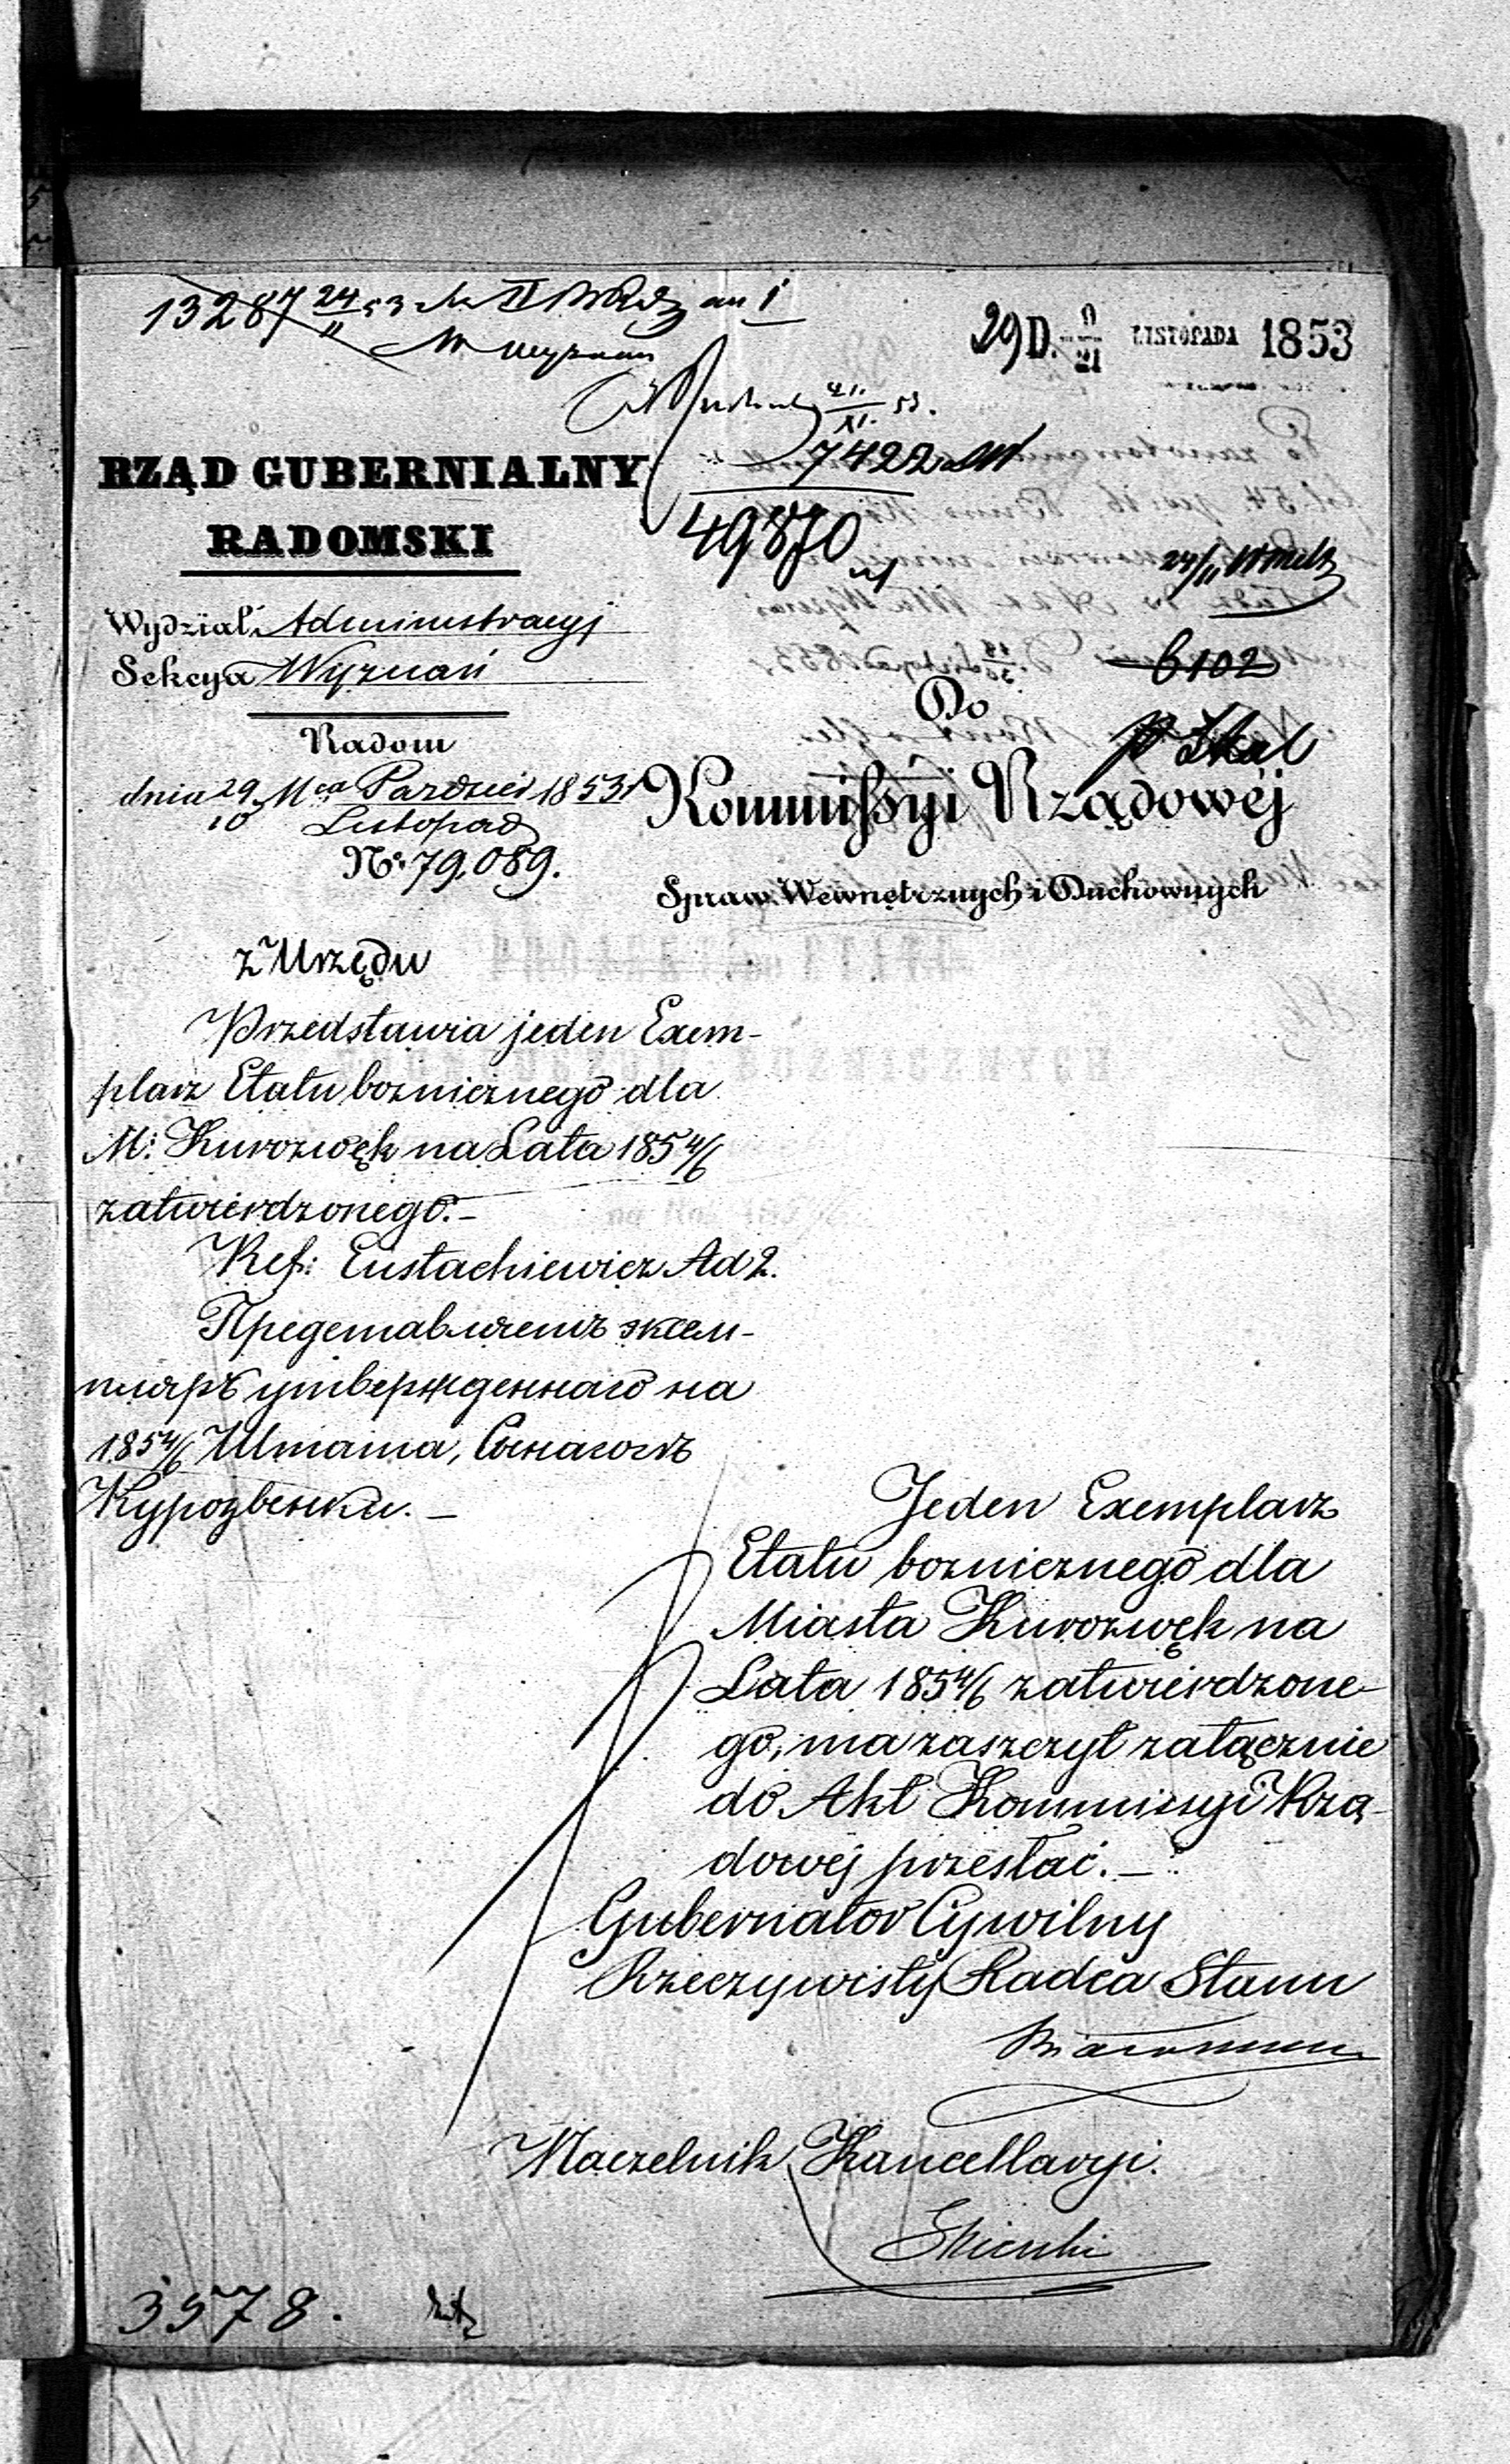 13287 24/11 53
29 D. 9/21 LISTOPADA 1853
7422
49870
RZĄD GUBERNIALNY
RADOMSKI
Wydział Administracyj
Sekcya Wyznań
6102
Radom
dnia 29 Mca Paździer 1853 r
10 Listopad
No. 79,089.
Do
Kommissyi Rządowéj
Spraw Wewnętrznych i Duchownych
z Urzędu
Przedstawia jeden Exem-
plarz Etatu bożnicznego dla
M: Kurozwęk na Lata 1854/6
zatwierdzonego.-
Ref: Eustachiewicz Ad 2.
Представленіе экзем-
пляръ утвержденнаго на
1854/6 Штата, Синагогѣ
Курозвенки. -
Jeden Exemplarz
Etatu bożnicznego dla
Miasta Kurozwęk na
Lata 1854/6 zatwierdzone-
go, ma zaszczyt załącznie
do Akt Kommissyi Rzą-
dowej przesłać. -
Gubernator Cywilny
Rzeczywisty Radca Stanu
Naczelnik Kancellaryi.
3578.